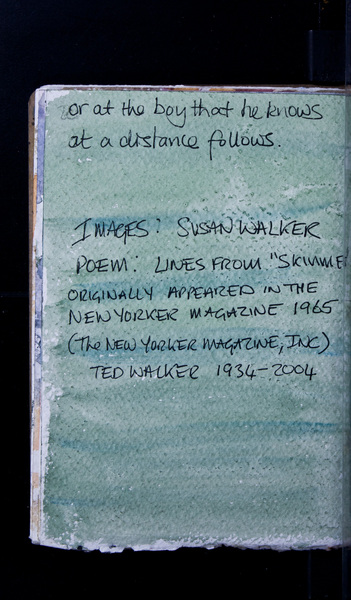 or at the boy that he knows
at a distance follows.
IMAGES: SUSAN WALKER
POEM: LINES FROM "SKIMME
ORIGINALLY APPEARED IN THE
NEW YORKER MAGAZINE 1965
(The NEW YORKER MAGAZINE, INC)
TED WALKER 1934-2004